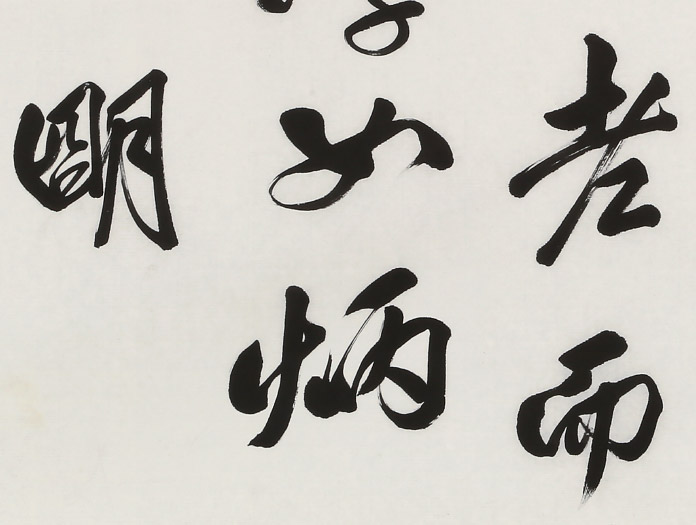 老而
學如炳
明